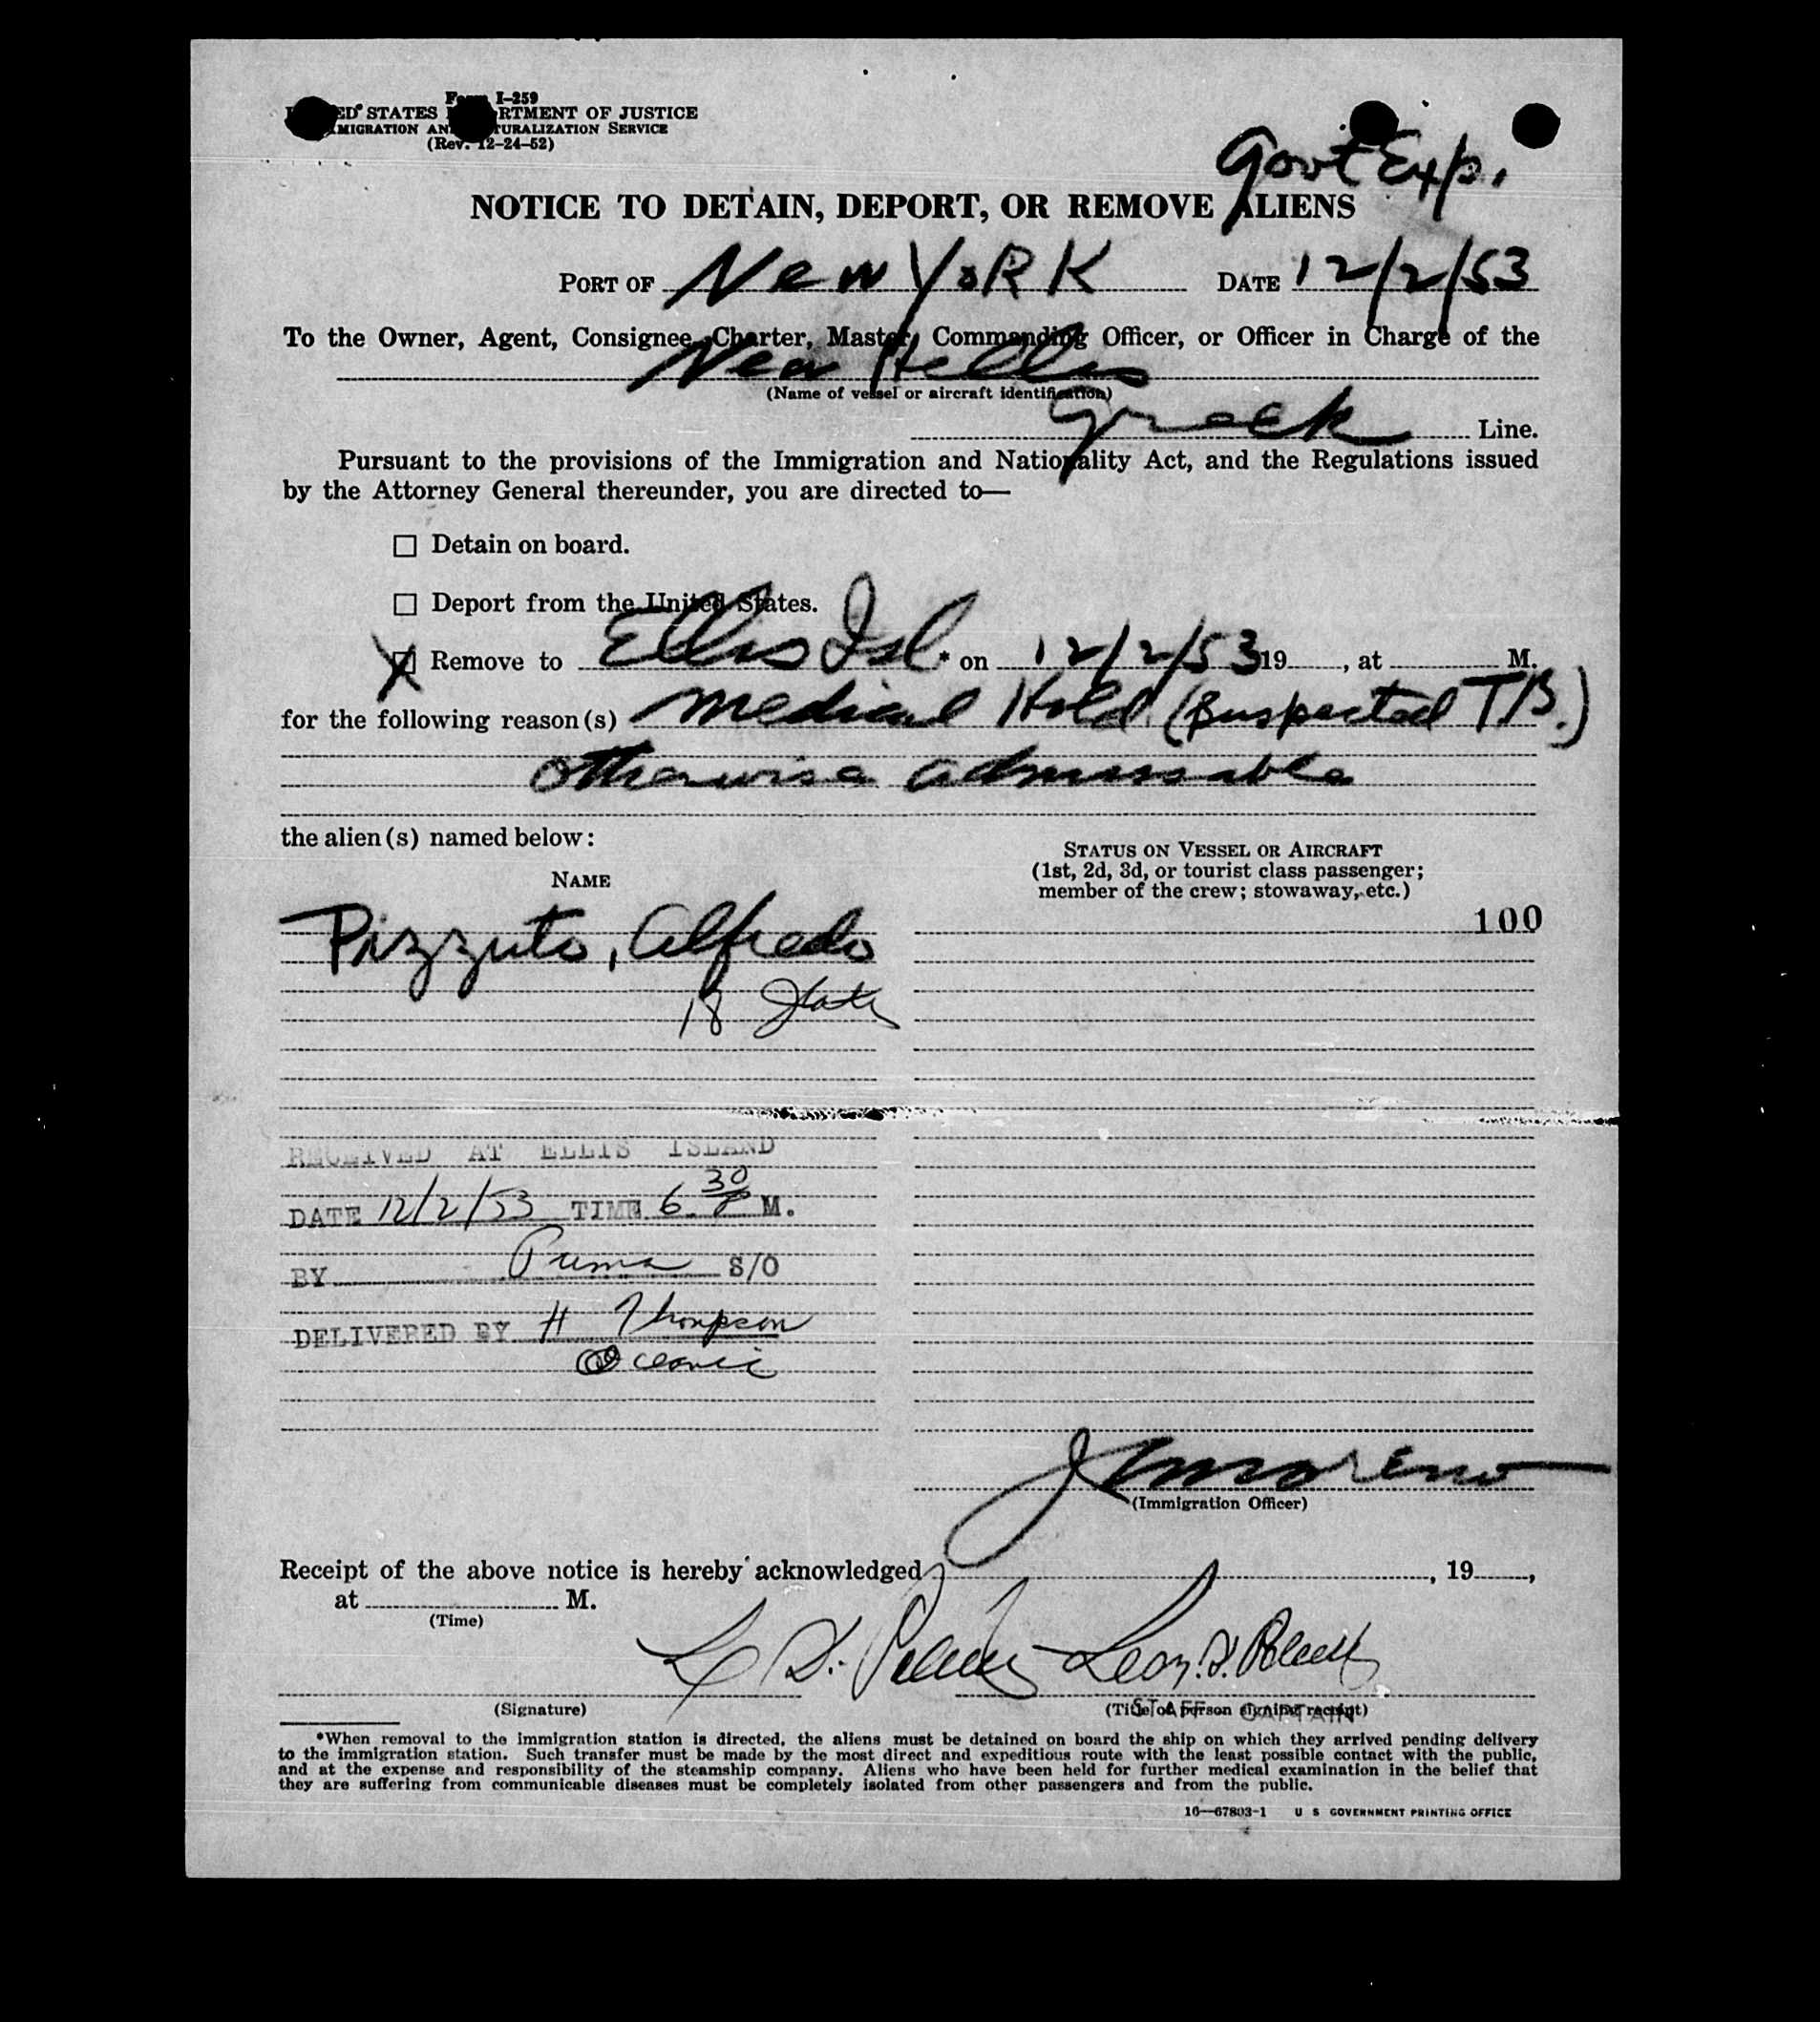 Form I-259
UNITED STATES DEPARTMENT OF JUSTICE
IMMIGRATION AND NATURALIZATION SERVICE
(Rev. 12-24-52)
Govt Exp.
NOTICE TO DETAIN, DEPORT, OR REMOVE ALIENS
PORT OF New YORK DATE 12/2/53
To the Owner, Agent, Consignee, Charter, Master, Commanding Officer, or Officer in Charge of the
Nea Hellas
(Name of vessel or aircraft identification)
Greek Line.
Pursuant to the provisions of the Immigration and Nationality Act, and the Regulations issued
by the Attorney General thereunder, you are directed to—
☐ Detain on board.
☐ Deport from the United States.
X Remove to Ellis Isl * on 12/2/53 19 , at M.
for the following reason(s) Medical Hold (Suspected TB.)
otherwise admissable
the alien(s) named below:
NAME
STATUS ON VESSEL OR AIRCRAFT
(1st, 2d, 3d, or tourist class passenger;
member of the crew; stowaway, etc.)
100
Pizzuto, Alfredo
18
RECEIVED AT ELLIS ISLAND
DATE 12/2/53 TIME 6 30 P M.
BY Puma S/O
DELIVERED BY H Thompson
Oceanic
Moreno
(Immigration Officer)
Receipt of the above notice is hereby acknowledged , 19 ,
at M.
(Time)
(Signature)
(Title of person signing receipt)
STAFF CAPTAIN
*When removal to the immigration station is directed, the aliens must be detained on board the ship on which they arrived pending delivery
to the immigration station. Such transfer must be made by the most direct and expeditious route with the least possible contact with the public,
and at the expense and responsibility of the steamship company. Aliens who have been held for further medical examination in the belief that
they are suffering from communicable diseases must be completely isolated from other passengers and from the public.
16—67803-1 U S GOVERNMENT PRINTING OFFICE